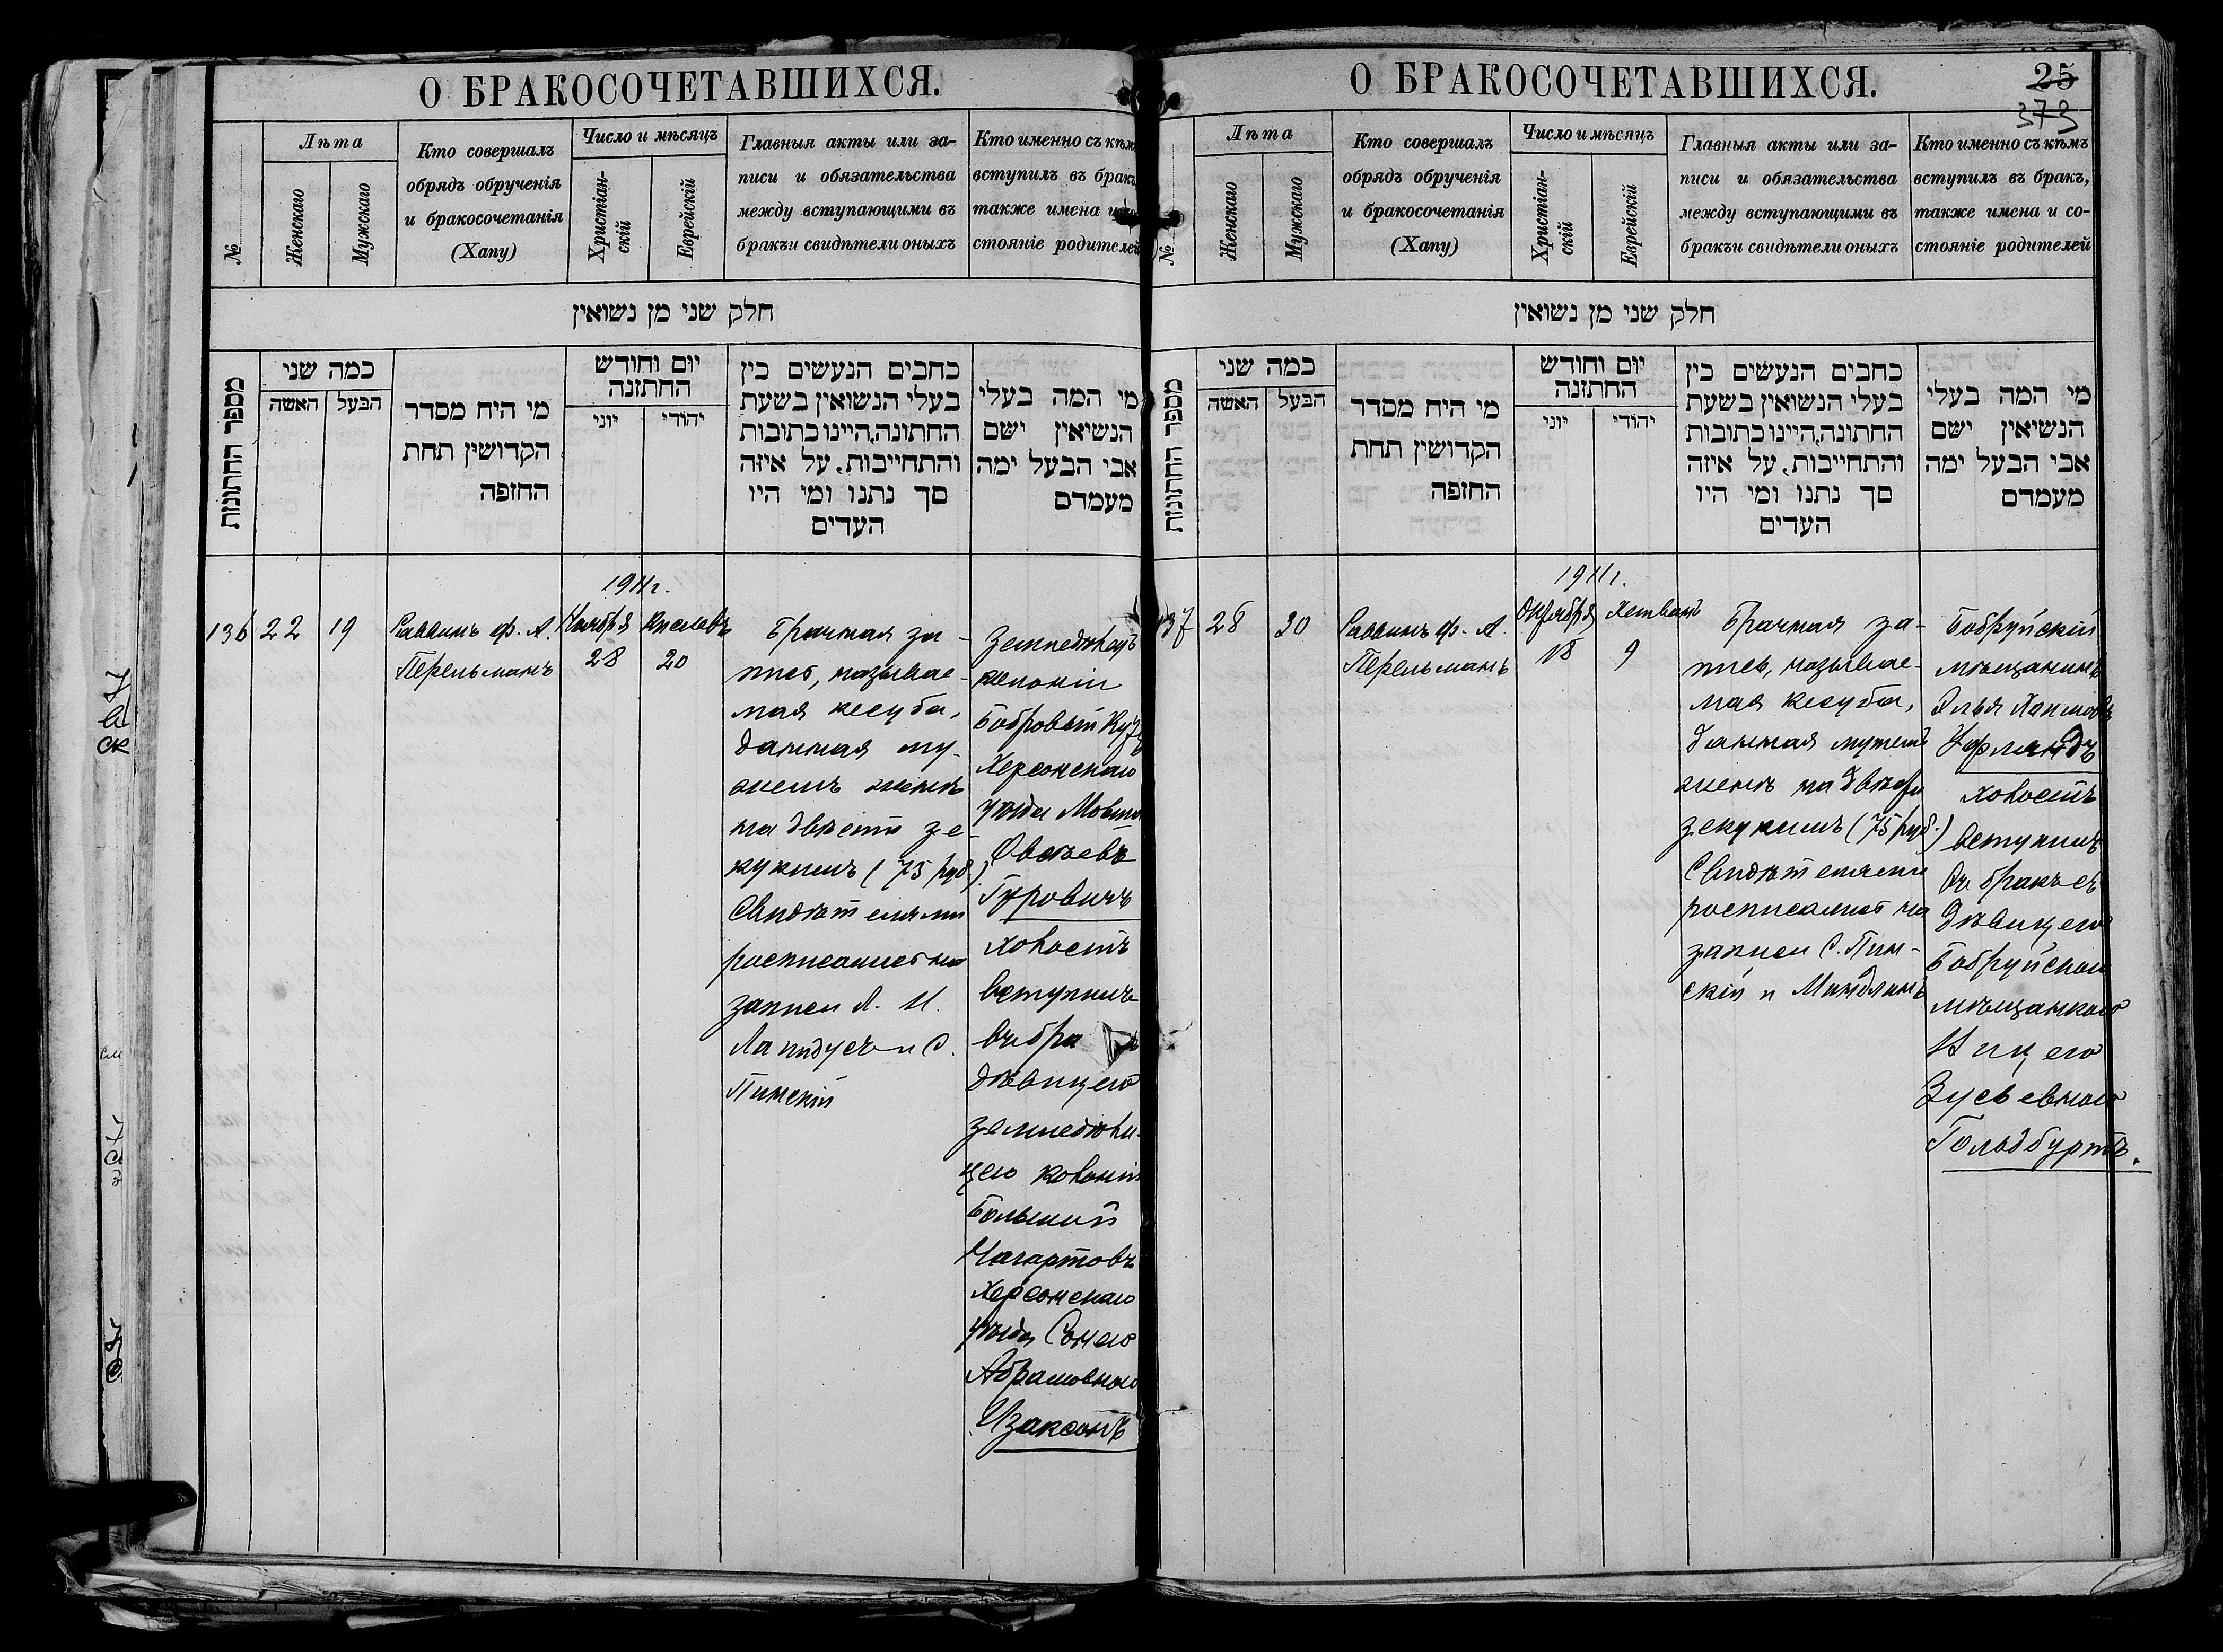 О БРАКОСОЧЕТАВШИХСЯ.
№
Лѣта
Женскаго
Мужскаго
Кто совершалъ
обрядъ обрученія
и бракосочетанія
(Хапу)
Число и мѣсяцъ
Христіан-
скій
Еврейскій
Главныя акты или за-
писи и обязательства
между вступающими въ
бракъ и свидѣтели оныхъ
Кто именно съ кѣмъ
вступилъ въ бракъ,
также имена и со-
стояніе родителей
חלק שני מן נשואין
מספר החתונות
כמה שני
האשה
הבעל
מי היח מסדר
הקדושין תחת
החזפה
יום וחודש
החתזנה
יוני
יהודי
כחבים הנעשים כין
בעלי הנשואין בשעת
החתונה.היינו כתובות
והתחייבות. על איזה
סך נתנו ומי היו
העדים
מי המה בעלי
הנשיאין ישם
אבי הבעל ימה
מעמדם
136
22
19
Раввинъ Ф. А.
Перельманъ
1911 г.
Ноября
28
Кислевъ
20
Брачная за-
пись, называе-
мая кесуба,
данная му-
жемъ женѣ
на двѣсти зе-
кукимъ (75 руб.)
Свидѣтелями
росписались на
записи А. И.
Лапидусъ и С.
Пинскій
Земледѣлецъ
колоніи
Бобровый Кут
Херсонскаго
уѣзда
Овсѣевъ
Гуровичъ
холостъ
вступилъ
въ бра
дѣвицею
земледѣли-
цею колоніи
Большой
Нагартовъ
Херсонскаго
уѣзда Сонею
Абрамовною
Изаксонъ
О БРАКОСОЧЕТАВШИХСЯ.
25
373
№
Лѣта
Женскаго
Мужскаго
Кто совершалъ
обрядъ обрученія
и бракосочетанія
(Хапу)
Число и мѣсяцъ
Христіан-
скій
Еврейскій
Главныя акты или за-
писи и обязательства
между вступающими въ
бракъ и свидѣтели оныхъ
Кто именно съ кѣмъ
вступилъ въ бракъ,
также имена и со-
стояніе родителей
חלק שני מן נשואין
מספר החתונות
כמה שני
האשה
הבעל
מי היח מסדר
הקדושין תחת
החזפה
יום וחודש
החתזנה
יוני
יהודי
כחבים הנעשים כין
בעלי הנשואין בשעת
החתונה.היינו כתובות
והתחייבות. על איזה
סך נתנו ומי היו
העדים
מי המה בעלי
הנשיאין ישם
אבי הבעל ימה
מעמדם
137
28
30
Раввинъ Ф. А.
Перельманъ
1911 г.
Октября
18
Хешванъ
9
Брачная за-
пись, называе-
мая кесуба,
данная мужемъ
женѣ на двѣсти
зекукимъ (75 руб.)
Свидѣтелями
росписались на
записи С. Пин-
скій и Миндлинъ
Бобруйскій
мѣщанинъ
Элья Хаимовъ
Уфландъ
холостъ
вступилъ
въ бракъ съ
дѣвицею
Бобруйскою
мѣщанкою
Зусьевною
Гольдбуртъ.